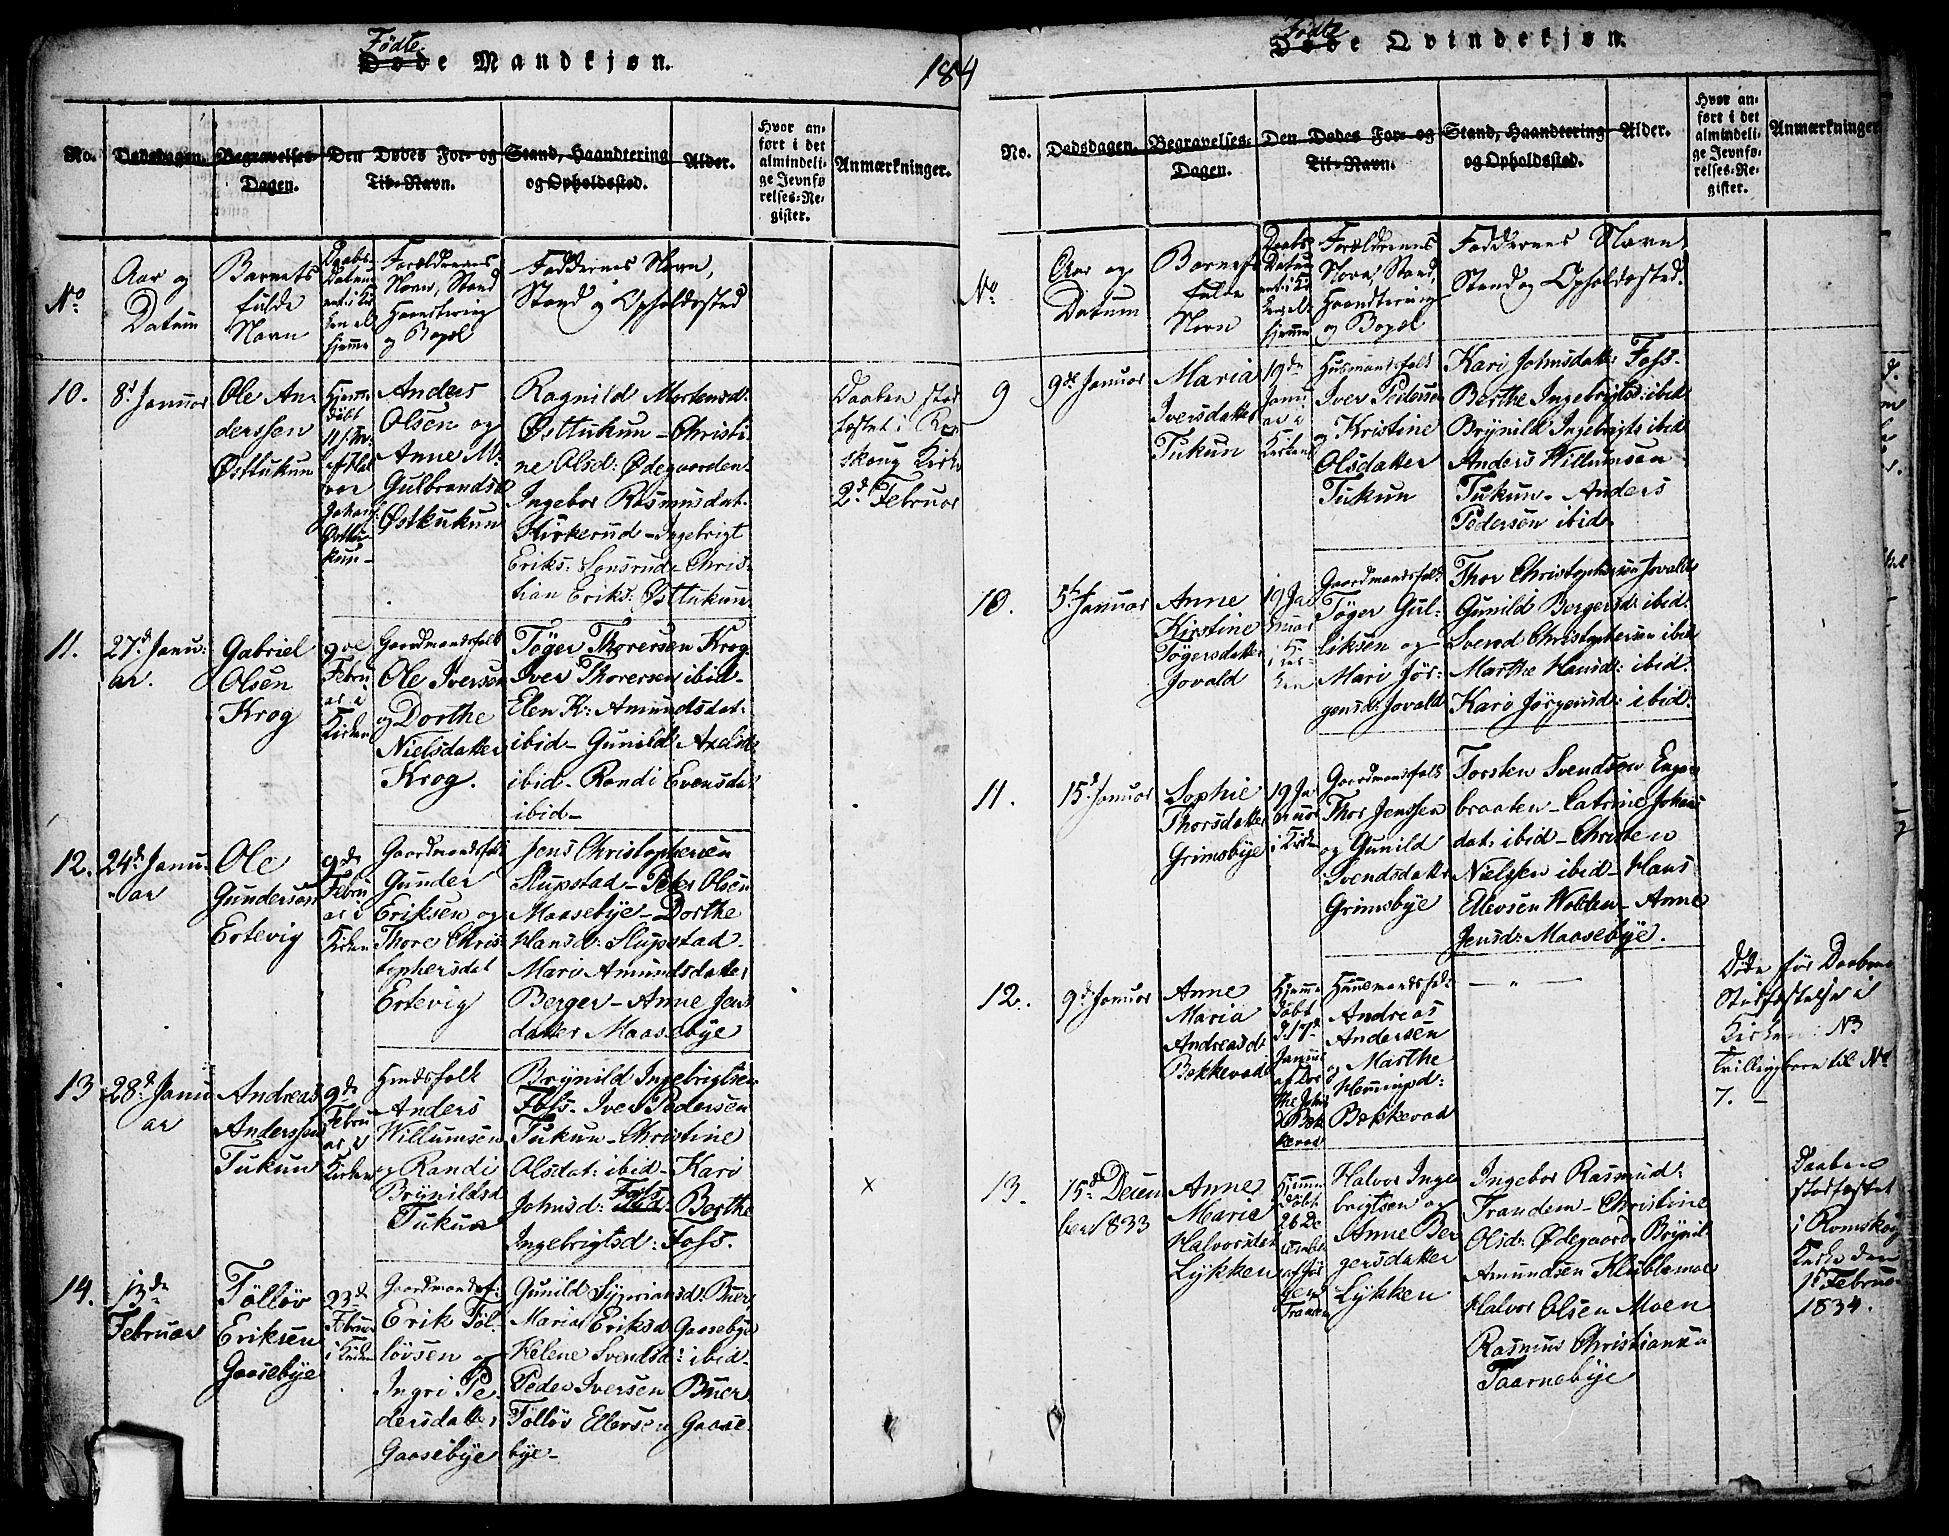 Fødte
Døde Mandkjøn.
184
No.
Dødsdagen.
Begravelses-
Dagen.
Den Dødes For- og
Til-Navn.
Stand, Haandtering
og Opholdssted.
Alder.
Hvor an-
ført i det
almindeli-
ge Jevnfø
relses-Re-
gister.
Anmærkninger.
No
Aar og
Datum
Barnets
fulde
Navn
Daabs-
Datum
Kir
ken el.
hjemme
Forældrenes
Navn, Stand
Haandtering
og Bopæl
Faddernes Navn,
Stand og Opholdssted
10.
8d Januar
Ole An
derssen
Østtukun
Hjemme
døbt
Østtu
kun-
Anders
Olsen og
Anne M.
Gulbrandsd
Østkukun
Ragnild Mortensd:
Østtukun - Christi
ne Olsd: Ødegaarden.
Ingebor Rasmusdat.
Kirkerud - Ingebrigt
Eriks: Sonsrud - Chris-
tian Eriks: Østtukun.
Daaben stad
fæstet i Rø
skoug Kirke
2d Februar
11.
27d Janu:
ar.
Gabriel
Olsen
Krog
9de
Febru
ar i
Kirken
Gaardmandsfolk
Ole Iversen
og Dorthe
Nielsdatter
Krog.
Töger Thorersen Krog
Iver Thorersen ibid-
Elen K: Amundsdat:
ibid- Gunild Axelsd:
ibid- Randi Evensdat
ibid-
12.
24d Janu-
ar
Ole
Gundersen
Ertevig
9d
Febru
ar i
Kirken
Gaardmandsfolk
Gunder
Eriksen og
Thore Chris
tophersdat
Ertevig
Jens Christophersen
Slupstad - Peter Olsen
Maasebÿe - Dorthe
Hansd: Slupstad-
Mari Amundsdatter
Berger - Anne Jens
datter Maasebÿe
13
28d Janu
ar
Andreas
Anderssen
Tukun
9d
Febru
ar i
Kirken
Huusfolk
Anders
Willumsen
og Randi
Brÿnildsd
Tukun
Brÿnild Ingebrigtsen
Foss- Iver Pedersen
Tukun - Christine
Olsdat: ibid- Kari
Johnsd: Foss Berthe
Ingebrigtsd: Foss.
x
14.
13de
Februar
Fölløv
Eriksen
Gaasebÿe
23d
Februar
i Kirken
Gaardmandsf:
Erik Föl-
løvsen og
Ingri Pe-
dersdatter
Gaasebÿe
Gunild Sÿverinsd: Buer
Maria Eriksd Gaasebÿe
Helene Svendsd: ibid-
Peder Iversen Buer
Fölløv Ellersen Gaase-
bÿe-
Fødte
Døde Qvindekjøn.
No.
Dødsdagen.
Begravelses-
Dagen.
Den Dødes For- og
Til-Navn.
Stand, Haandtering
og Opholdssted.
Alder.
Hvor an-
ført i det
almindeli-
ge Jevnfø-
relses-Re-
gister.
Anmærkninger
No
Aar og
Datum
Barnets
fulde
Navn
Daabs-
Datum
Kir
ken el.
hjemme
Forældrenes
Navn, Stand,
Haandtering
og Bopæl
Faddernes Navn
Stand og Opholdssted.
9
9de Januar
Maria
Iversdatter
Tukun
19de
Janu
ar i
Kirken
Husmandsfolk
Iver Pedersen
og Kristine
Olsdatter
Tukun
Kari Johnsdatter Foss-
Berthe Ingebrigtsd: ibid
Brÿnild Ingebrigts ibid
Anders Willumsen
Tukun - Anders
Pedersen ibid-
10.
5t Januar
Anne
Kirstine
Tögersdatter
Jovald
19 Ja
nuar
i Kir-
ken
Gaardmandsfolk
Töger Gul-
liksen og
Mari Jör-
gensd: Jovald
Thor Christophersen Jovald
Gunild Bergersd: ibid:
Svend Christophersen ibid
Marthe Hansd: ibid-
Kari Jörgensd: ibid:
11.
15d Januar
Sophie
Thorsdatter
Grimsbÿe
19 Ja
nuar
i Kirken
Gaardmandsfolk
Thor Jenssen
og Gunild
Svendsdatter
Grimsbÿe
Torsten Svendsen Enge
braaten - Catrine Johans
dat: ibid - Christen
Nielsen ibid - Hans
Ellevsen Wolden - Anne
Jensd: Maasebÿe.
12.
9d Januar
Anne
Maria
Andreasd
Bekkevad
Hjemme
døbt
d. 17d
Januar
af Dor
the Johns
d Bek
kevad
Huusmandsfolk
Andreas
Andersen
og Marthe
Bekkevad
— " —
Döde för Daabens
Stadfæstelse i
Kirken. NB
Trillingbarn til No
7. -
13.
15d Decem
ber 1833
Anne
Marie
Halvorsdat
Lÿkken
Hjemme
døbt
26 De
cember
af Jör
gen
Tranden
Halvor Inge
brigtsen og
Anne Ber
gersdatter
Lÿkken
Ingebor Rasmusd:
Trandem - Christine
Olsd: Ødegaard - Brÿnil
Amundsen Klublemoe
Halvor Olsen Moen
Rasmus Christiansen
Taarnebÿe
Daaben
stadfæstet
i Romskoug
Kirke den
1d Februar
1834.